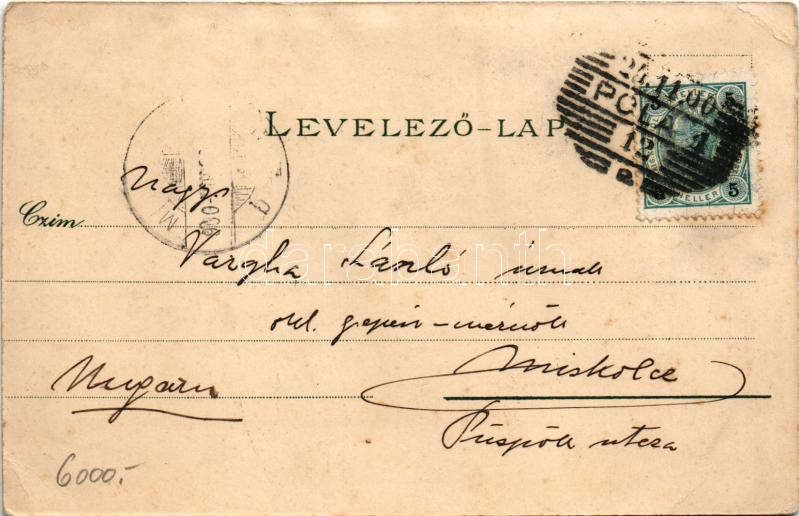 LEVELEZŐ-LAP
24.11.00
POLA 1
12
5 5
HELLER
M
Nagys
Czim
Vargha László úrnak
okl. gépész-mérnök
Ungarn
Miskolcz
Püspök utcza
6000.-
darabanth